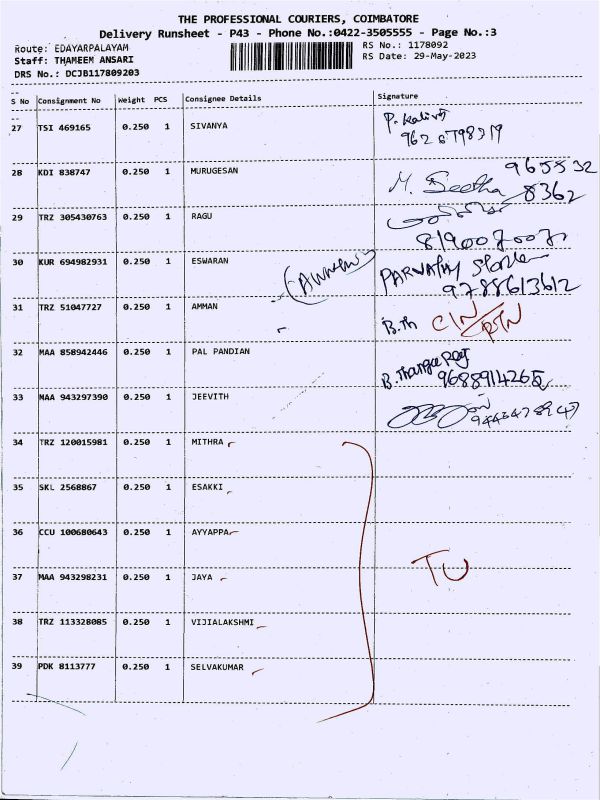 THE PROFESSIONAL COURIERS, COIMBATORE
Delivery Runsheet - P43 - Phone No.:0422-3505555 - Page No.:3
Route: EDAYARPALAYAM RS No.: 1178092
Staff: THAMEEM ANSARI RS Date: 29-May-2023
DRS No.: DCJB117809203
S No Consignment No Weight PCS Consignee Details Signature
27 TSI 469165 0.250 1 SIVANYA
9626798319
28 KDI 838747 0.250 1 MURUGESAN M. Seetha 965532
8362
29 TRZ 305430763 0.250 1 RAGU
8190070071
30 KUR 694982931 0.250 1 ESWARAN PARVATHY
9788613612
31 TRZ 51047727 0.250 1 AMMAN B.Th CIN/RTN
32 MAA 858942446 0.250 1 PAL PANDIAN B. Thangaraj
9688914265
33 MAA 943297390 0.250 1 JEEVITH
34 TRZ 120015981 0.250 1 MITHRA
35 SKL 2568867 0.250 1 ESAKKI
36 CCU 100680643 0.250 1 AYYAPPA
TU
37 MAA 943298231 0.250 1 JAYA
38 TRZ 113328085 0.250 1 VIJIALAKSHMI
39 PDK 8113777 0.250 1 SELVAKUMAR